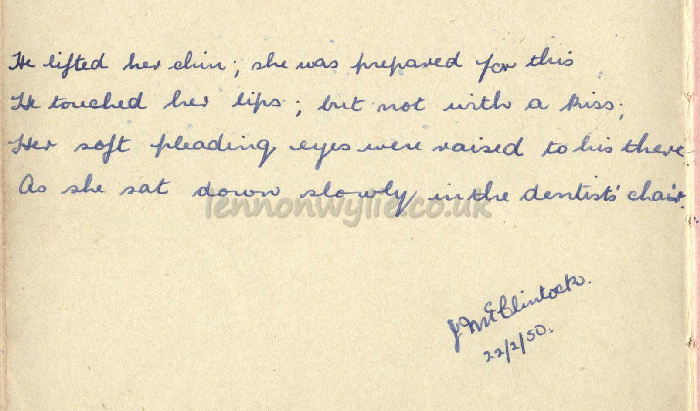 He lifted her chin; she was prepared for this
He touched her lips; but not with a kiss;
Her soft pleading eyes were raised to his there
As she sat down slowly in the dentists' chair.
lennonwylie.co.uk
J McClintock.
22/2/50.